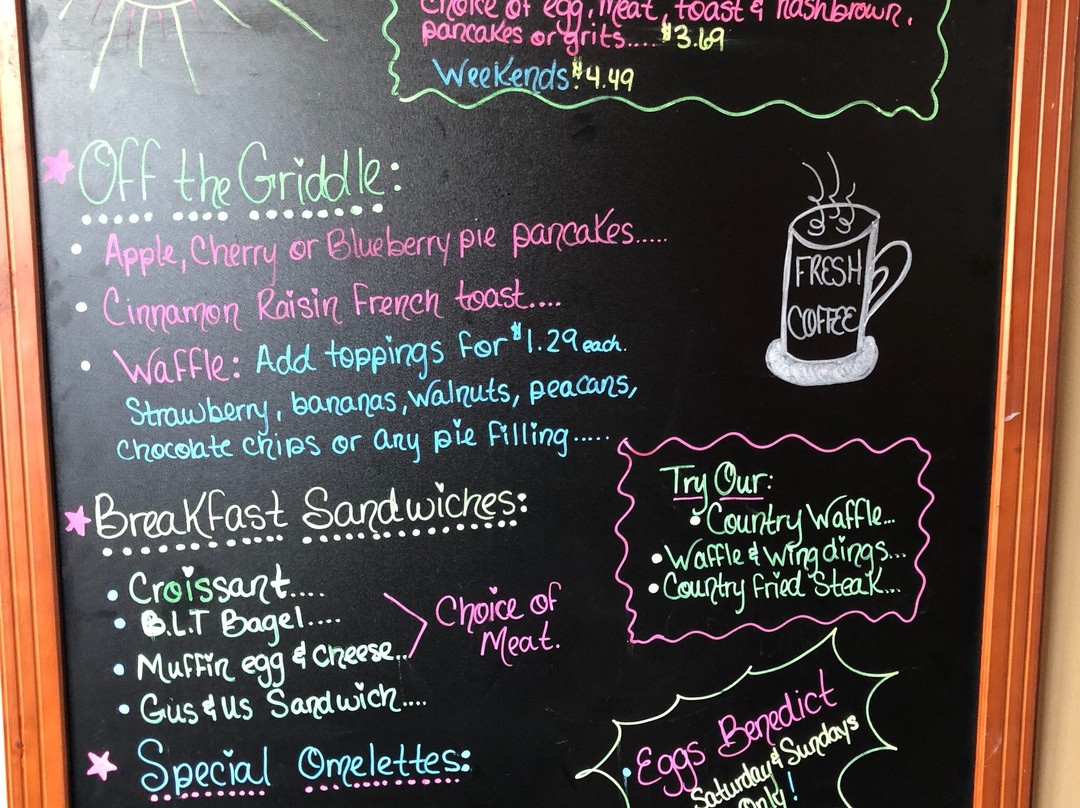 Choice of egg, meat, toast & hashbrown,
pancakes or grits.... $3.69
Weekends $4.49
Off the Griddle:
• Apple, Cherry or Blueberry pie pancakes.....
• Cinnamon Raisin French toast....
• Waffle: Add toppings for $1.29 each.
Strawberry, bananas, walnuts, peacans,
chocolate chips or any pie filling.....
FRESH
COFFEE
Try Our:
• Country Waffle...
• Waffle & wing dings...
• Country Fried Steak...
Breakfast Sandwiches:
• Croissant....
• B.L.T Bagel....
• Muffin egg & cheese..
• Gus & Us Sandwich....
Choice of
Meat.
Special Omelettes:
• Eggs Benedict
Saturday & Sundays
Only!